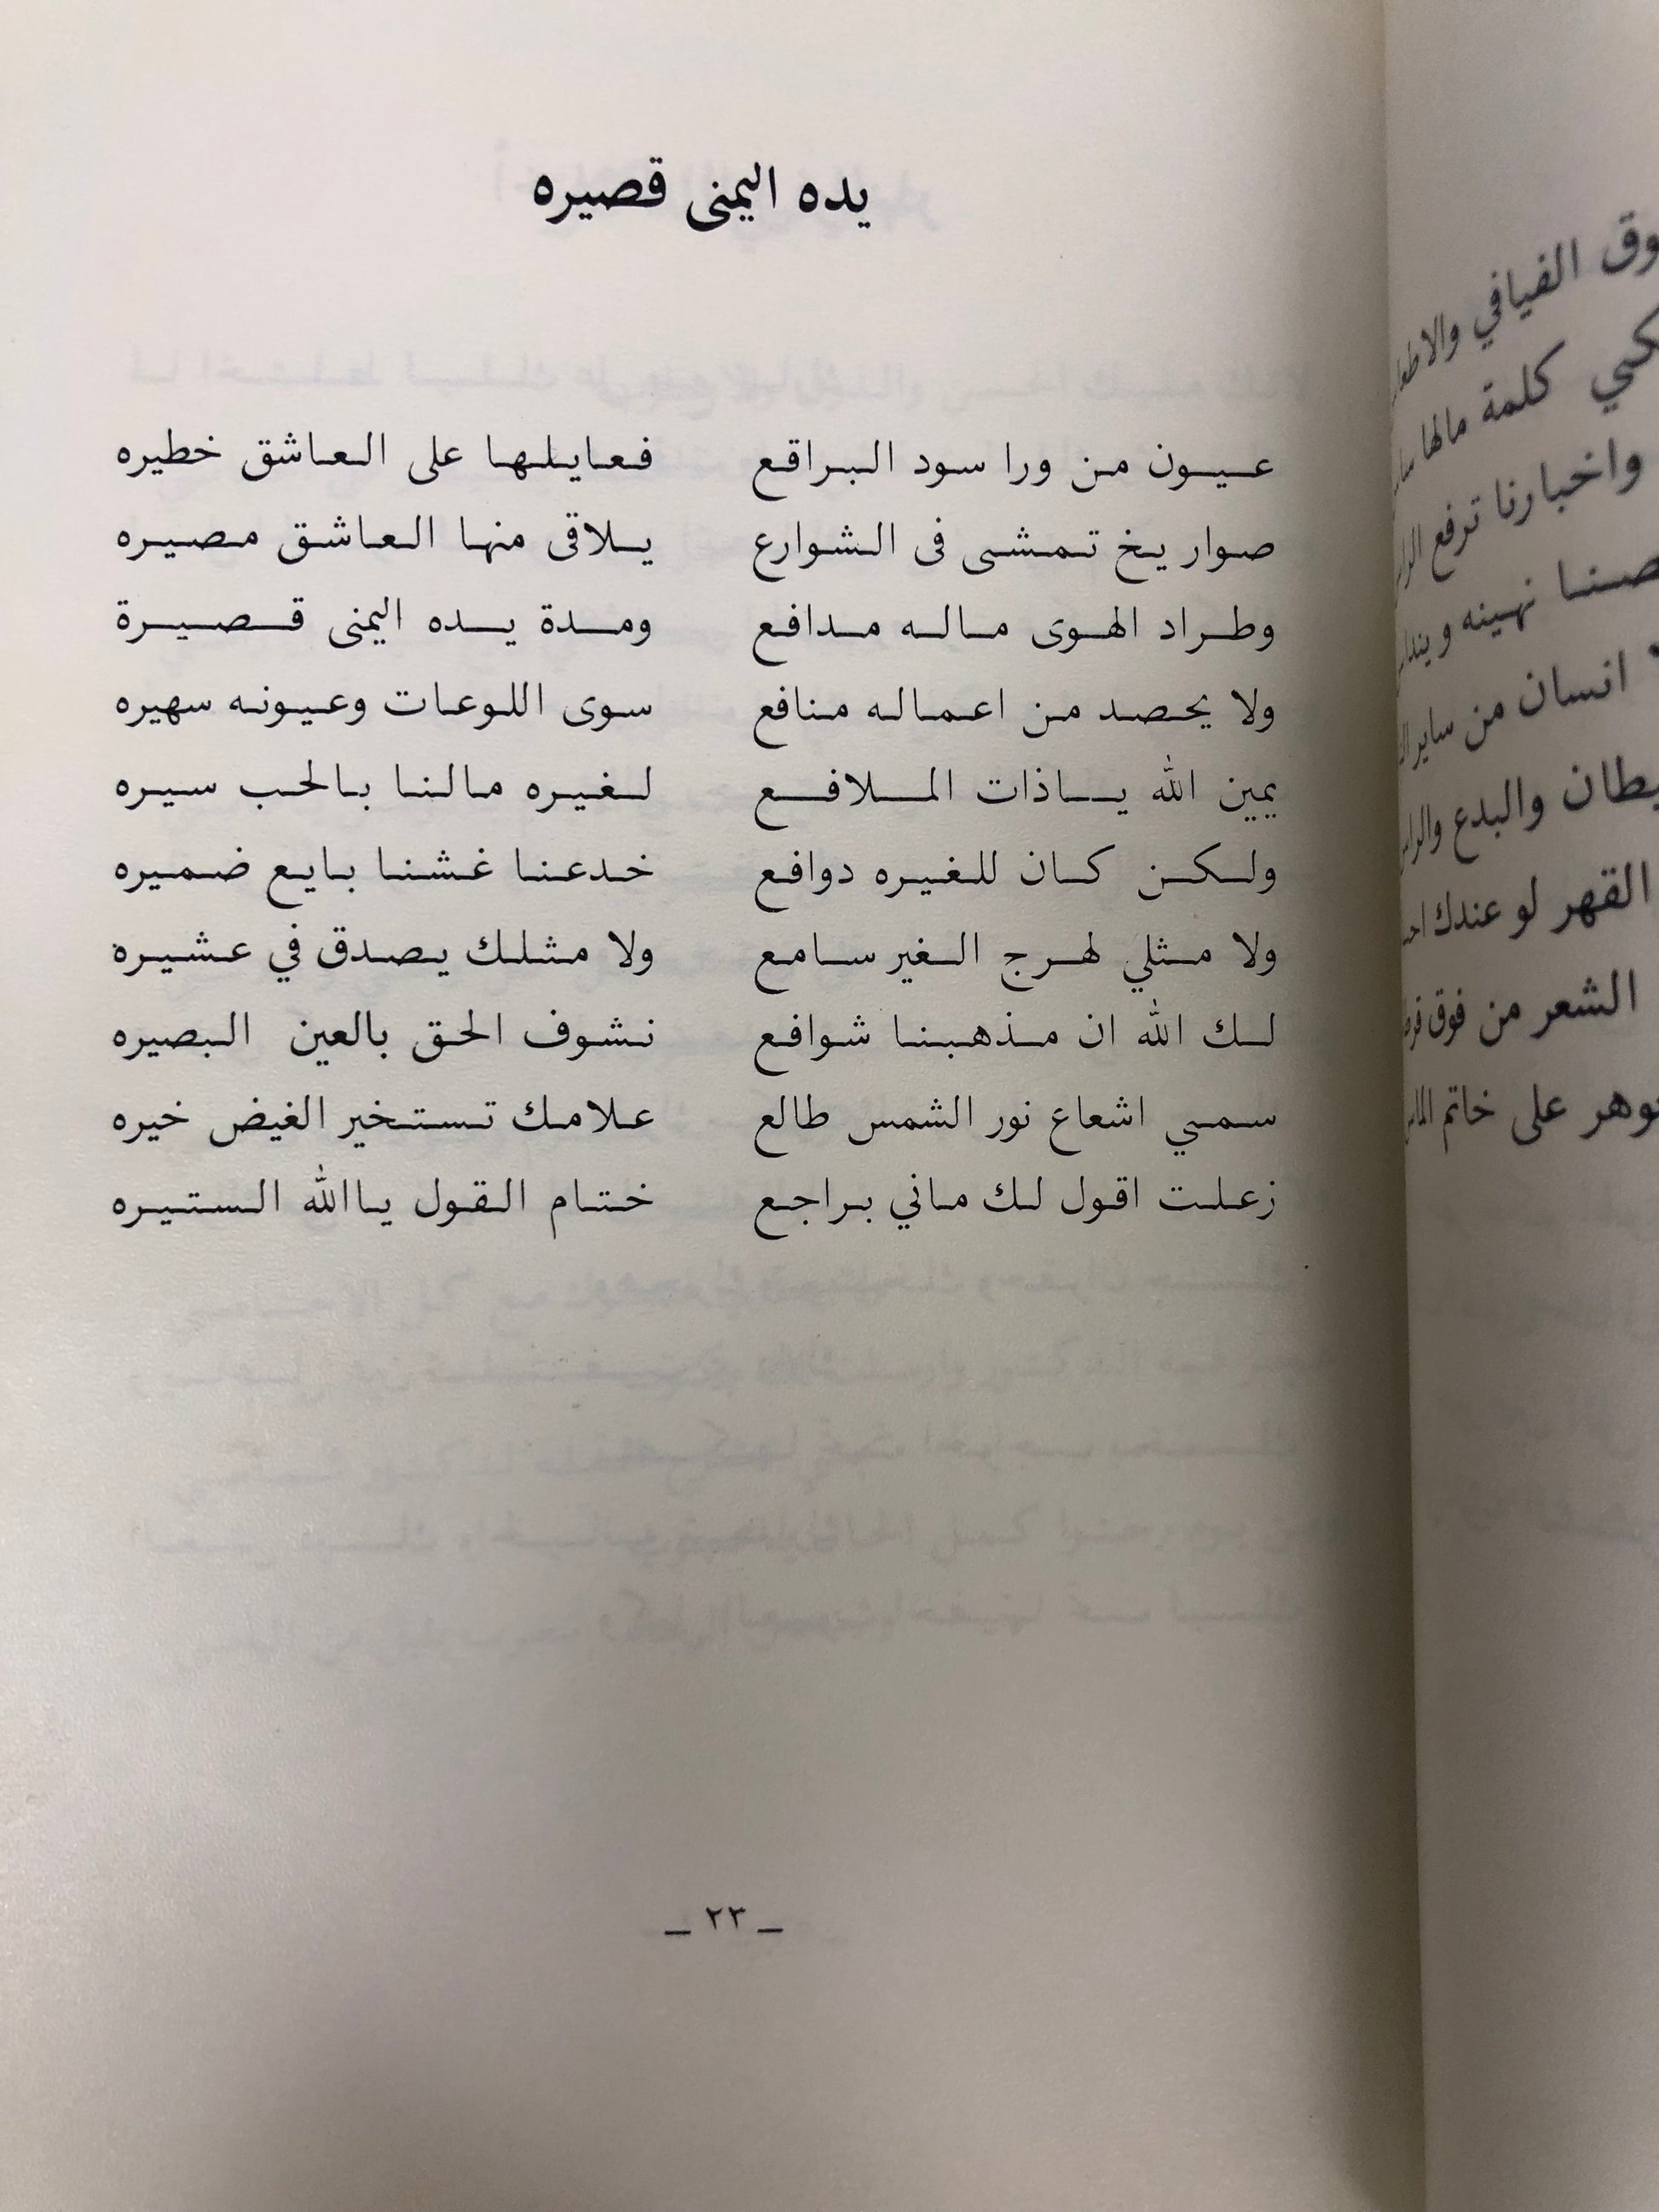 يده اليمنى قصيره
عيون من ورا سود البراقع فعايلها على العاشق خطيره
صواريخ تمشى فى الشوارع يلاقى منها العاشق مصيره
وطراد الهوى ماله مدافع ومدة يده اليمنى قصيرة
ولا يحصد من اعماله منافع سوى اللوعات وعيونه سهيره
يمين الله ياذات الملافع لغيره مالنا بالحب سيره
ولكن كان للغيره دوافع خدعنا غشنا بايع ضميره
ولا مثلي لهرج الغير سامع ولا مثلك يصدق في عشيره
لك الله ان مذهبنا شوافع نشوف الحق بالعين البصيره
سمي اشعاع نور الشمس طالع علامك تستخير الغيض خيره
زعلت اقول لك ماني براجع ختام القول ياالله الستيره
ـ ٢٣ ـ
الفيافي
كلمة مالها
واخبارنا ترفع
نهينه
انسان من ساير
والبدع
القهر لو عندك
الشعر من فوق
على خاتم